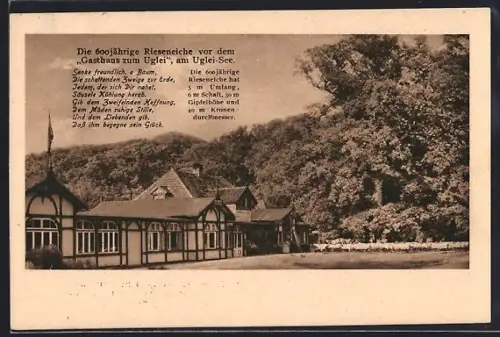 Die 600jährige Rieseneiche vor dem
„Gasthaus zum Uglei“, am Uglei-See.
Senke freundlich, o Baum,
Die schattenden Zweige zur Erde,
Jedem, der sich Dir naht,
Säusele Kühlung herab.
Gib dem Zweifelnden Hoffnung,
Dem Müden ruhige Stille,
Und dem Liebenden gib,
Daß ihm begegne sein Glück.
Die 600jährige
Rieseneiche hat
5 m Umfang,
6 m Schaft, 30 m
Gipfelhöhe und
40 m Kronen-
durchmesser.